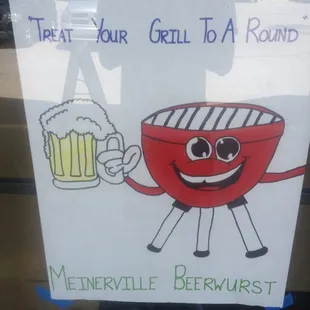 "TREAT YOUR GRILL TO A ROUND"
MEINERVILLE BEERWURST